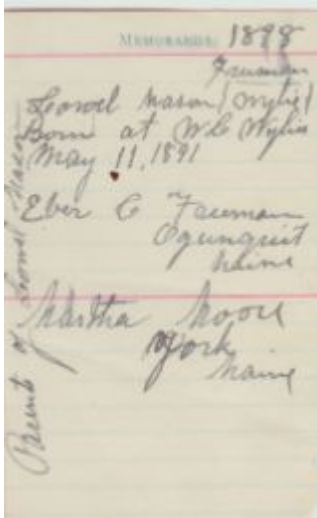 MEMORANDA 1898
Freeman
Lowel Mason (Wylie)
Born at W C Wylies
May 11, 1891
Eber C Freeman
Ogunquit
Maine
Martha Moore
York
Maine
Parents of Leowel Mason